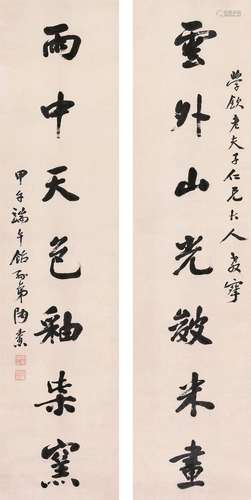 學欽老夫子仁兄大人
雲外山光皴米畫
雨中天色釉柴窯
甲午端午館弟陶